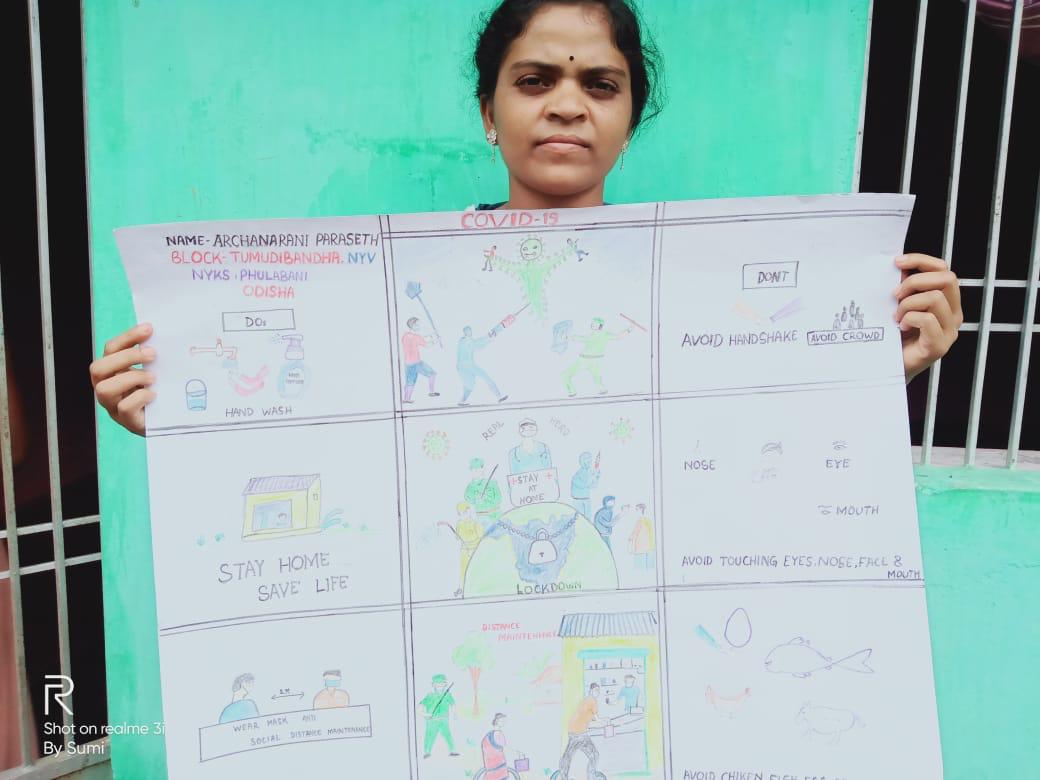 COVID-19
NAME- ARCHANARANI PARASETH
BLOCK- TUMUDIBANDHA. NYV
NYKS, PHULABANI
ODISHA
DOs
HAND WASH
DON'T
AVOID HANDSHAKE
AVOID CROWD
STAY HOME
SAVE LIFE
REAL HERO
STAY
AT
HOME
LOCKDOWN
NOSE
EYE
MOUTH
AVOID TOUCHING EYES, NOSE, FACE &
MOUTH
2M
WEAR MASK AND
SOCIAL DISTANCE MAINTENANCE
DISTANCE
MAINTENANCE
AVOID CHIKEN FISH EGG
R
Shot on realme 3i
By Sumi